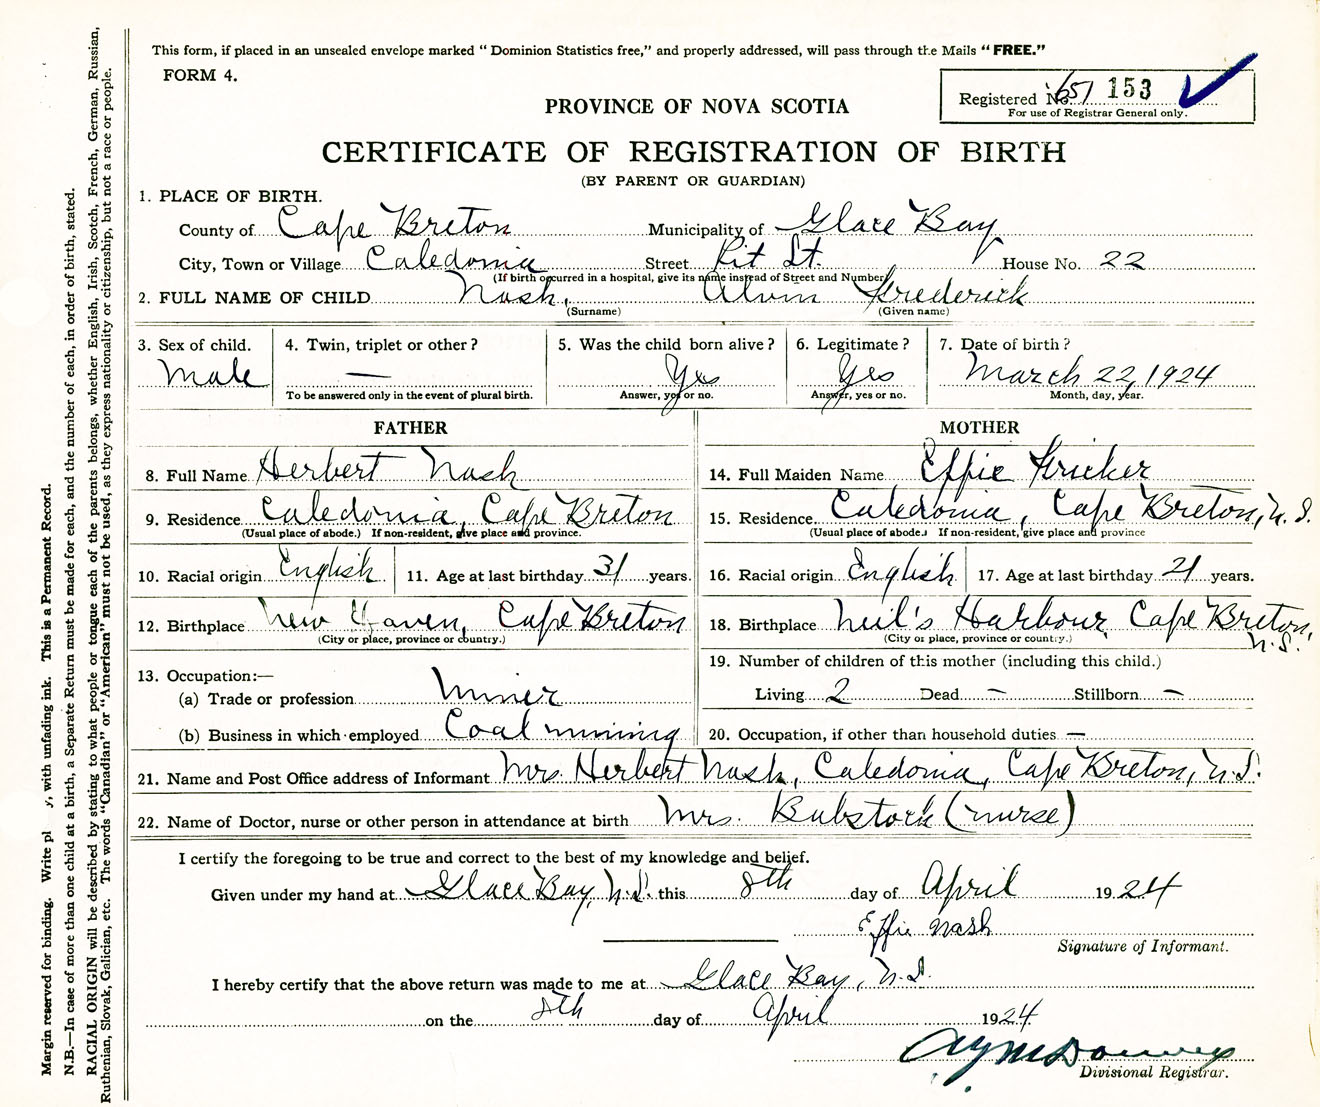 This form, if placed in an unsealed envelope marked "Dominion Statistics free," and properly addressed, will pass through the Mails "FREE."
FORM 4.
Registered No. 651 153
For use of Registrar General only.
PROVINCE OF NOVA SCOTIA
CERTIFICATE OF REGISTRATION OF BIRTH
(BY PARENT OR GUARDIAN)
1. PLACE OF BIRTH.
County of Cape Breton Municipality of Glace Bay
City, Town or Village Caledonia Street Pit St. House No. 22
(If birth occurred in a hospital, give its name instead of Street and Number)
2. FULL NAME OF CHILD Nash, Alvin Frederick
(Surname) (Given name)
3. Sex of child. 4. Twin, triplet or other? 5. Was the child born alive? 6. Legitimate? 7. Date of birth?
Male — Yes Yes March 22, 1924
To be answered only in the event of plural birth. Answer, yes or no. Answer, yes or no. Month, day, year.
FATHER
8. Full Name Herbert Nash
9. Residence Caledonia, Cape Breton
(Usual place of abode.) If non-resident, give place and province.
10. Racial origin English 11. Age at last birthday 31 years.
12. Birthplace New Haven, Cape Breton
(City or place, province or country.)
13. Occupation:—
(a) Trade or profession Miner
(b) Business in which employed Coal mining
MOTHER
14. Full Maiden Name Effie
15. Residence Caledonia, Cape Breton, N.S.
(Usual place of abode.) If non-resident, give place and province
16. Racial origin English 17. Age at last birthday 21 years.
18. Birthplace Neil's Harbour Cape Breton, N.S.
(City or place, province or country.)
19. Number of children of this mother (including this child.)
Living 2 Dead — Stillborn —
20. Occupation, if other than household duties —
21. Name and Post Office address of Informant Mrs. Herbert Nash, Caledonia, Cape Breton, N.S.
22. Name of Doctor, nurse or other person in attendance at birth Mrs. (nurse)
I certify the foregoing to be true and correct to the best of my knowledge and belief.
Given under my hand at Glace Bay, N.S. this 8th day of April 1924
Effie Nash
Signature of Informant.
I hereby certify that the above return was made to me at Glace Bay, N.S.
on the 8th day of April 1924.
Divisional Registrar.
Margin reserved for binding. Write pl y, with unfading ink. This is a Permanent Record.
N.B.—In case of more than one child at a birth, a Separate Return must be made for each, and the number of each, in order of birth, stated.
RACIAL ORIGIN will be described by stating to what people or tongue each of the parents belongs, whether English, Irish, Scotch, French, German, Russian,
Ruthenian, Slovak, Galician, etc. The words "Canadian" or "American" must not be used, as they express nationality or citizenship, but not a race or people.